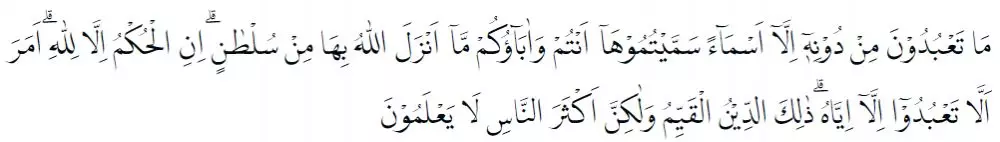 مَا تَعْبُدُوْنَ مِنْ دُوْنِهٖٓ اِلَّآ اَسْمَاۤءً سَمَّيْتُمُوْهَآ اَنْتُمْ وَاٰبَاۤؤُكُمْ مَّآ اَنْزَلَ اللّٰهُ بِهَا مِنْ سُلْطٰنٍۗ اِنِ الْحُكْمُ اِلَّا لِلّٰهِ ۗاَمَرَ
اَلَّا تَعْبُدُوْٓا اِلَّآ اِيَّاهُ ۗذٰلِكَ الدِّيْنُ الْقَيِّمُ وَلٰكِنَّ اَكْثَرَ النَّاسِ لَا يَعْلَمُوْنَ